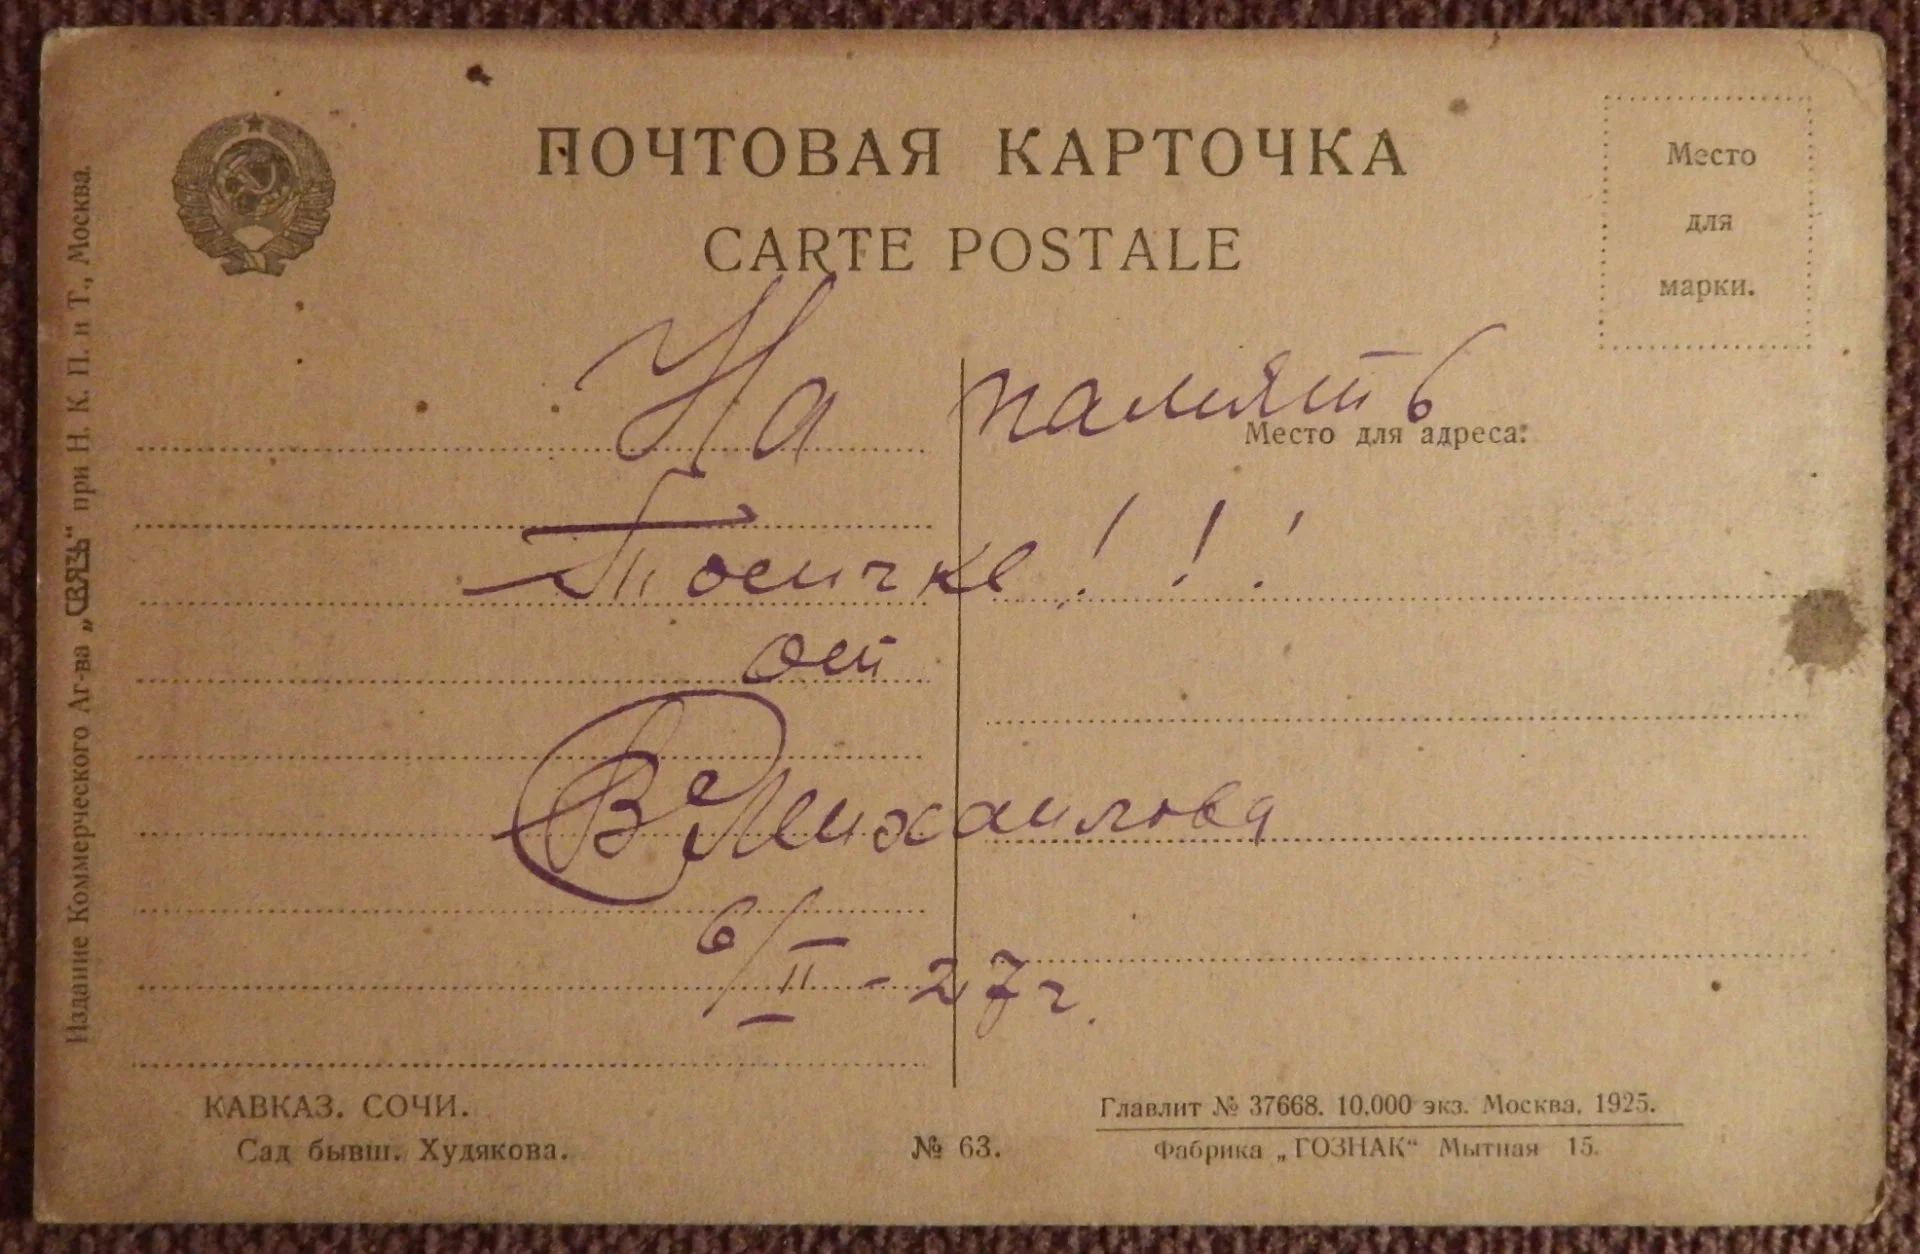 ПОЧТОВАЯ КАРТОЧКА
CARTE POSTALE
Место
для
марки.
Издание Коммерческого Аг-ва „СВЯЗЬ“ при Н. К. П. и Т., Москва.
На память
Место для адреса:
Тосичке!!!
от
В Михаилова
6/II - 27 г.
КАВКАЗ. СОЧИ.
Сад бывш. Худякова.
№ 63.
Главлит № 37668. 10.000 экз. Москва. 1925.
Фабрика „ГОЗНАК“ Мытная 15.